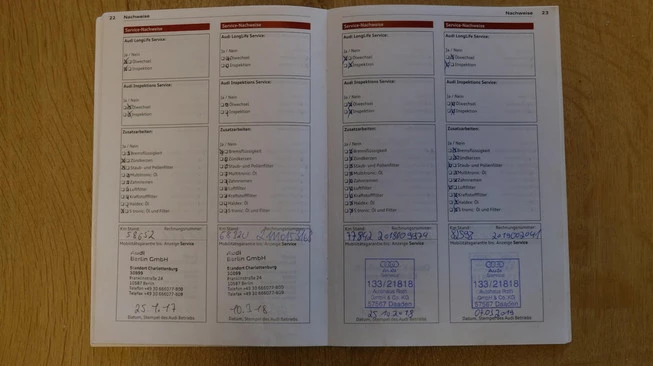 22 Nachweise
Service-Nachweise
Audi LongLife Service:
Ja / Nein
Ölwechsel
Inspektion
Audi Inspektions Service:
Ja / Nein
Ölwechsel
Inspektion
Zusatzarbeiten:
Ja / Nein
Bremsflüssigkeit
Zündkerzen
Staub- und Pollenfilter
Multitronic: Öl
Zahnriemen
Luftfilter
Kraftstofffilter
Haldex: Öl
S tronic: Öl und Filter
Km-Stand: Rechnungsnummer:
Mobilitätsgarantie bis: Anzeige Service
Audi
Berlin GmbH
Standort Charlottenburg
Franklinstraße 24
10587 Berlin
25.1.17
Datum, Stempel des Audi Betriebs
Service-Nachweise
Audi LongLife Service:
Ja / Nein
Ölwechsel
Inspektion
Audi Inspektions Service:
Ja / Nein
Ölwechsel
Inspektion
Zusatzarbeiten:
Ja / Nein
Bremsflüssigkeit
Zündkerzen
Staub- und Pollenfilter
Multitronic: Öl
Zahnriemen
Luftfilter
Kraftstofffilter
Haldex: Öl
S tronic: Öl und Filter
Km-Stand: Rechnungsnummer:
Mobilitätsgarantie bis: Anzeige Service
Audi
Berlin GmbH
Standort Charlottenburg
Franklinstraße 24
10587 Berlin
Datum, Stempel des Audi Betriebs
Nachweise 23
Service-Nachweise
Audi LongLife Service:
Ja / Nein
Ölwechsel
Inspektion
Audi Inspektions Service:
Ja / Nein
Ölwechsel
Inspektion
Zusatzarbeiten:
Ja / Nein
Bremsflüssigkeit
Zündkerzen
Staub- und Pollenfilter
Multitronic: Öl
Zahnriemen
Luftfilter
Kraftstofffilter
Haldex: Öl
S tronic: Öl und Filter
Km-Stand: Rechnungsnummer:
Mobilitätsgarantie bis: Anzeige Service
Audi
Service
133/21818
Autohaus Roth
GmbH & Co. KG
57567 Daaden
Datum, Stempel des Audi Betriebs
Service-Nachweise
Audi LongLife Service:
Ja / Nein
Ölwechsel
Inspektion
Audi Inspektions Service:
Ja / Nein
Ölwechsel
Inspektion
Zusatzarbeiten:
Ja / Nein
Bremsflüssigkeit
Zündkerzen
Staub- und Pollenfilter
Multitronic: Öl
Zahnriemen
Luftfilter
Kraftstofffilter
Haldex: Öl
S tronic: Öl und Filter
Km-Stand: Rechnungsnummer:
Mobilitätsgarantie bis: Anzeige Service
Audi
Service
133/21818
Autohaus Roth
GmbH & Co. KG
57567 Daaden
Datum, Stempel des Audi Betriebs